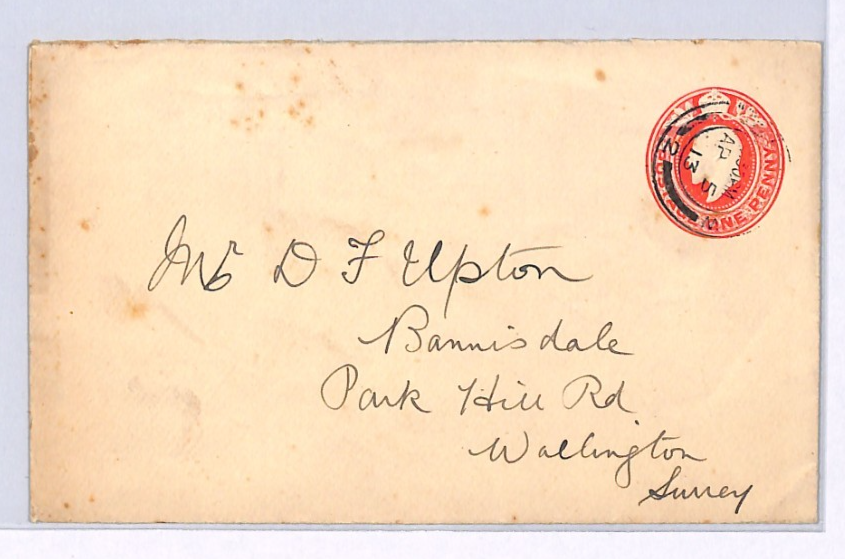 POSTAGE ONE PENNY
AP 13
2
Mr D F Upton
Bannisdale
Park Hill Rd
Wallington
Surrey